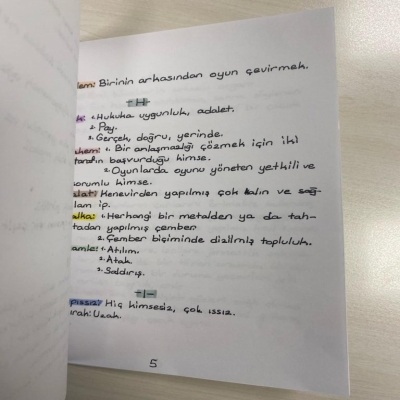 lem: Birinin arkasından oyun çevirmek.
-H-
k: 1. Hukuka uygunluk, adalet.
2. Pay.
3. Gerçek, doğru, yerinde.
kem: 1. Bir anlaşmazlığı çözmek için iki
tarafın başvurduğu kimse.
2. Oyunlarda oyunu yöneten yetkili ve
sorumlu kimse.
lat: Kenevirden yapılmış çok kalın ve sağ-
lam ip.
lka: 1. Herhangi bir metalden ya da tah-
tadan yapılmış çember.
2. Çember biçiminde dizilmiş topluluk.
amle: 1. Atılım.
2. Atak.
3. Saldırış.
-I-
pıssız: Hiç kimsesiz, çok ıssız.
rak: Uzak.
5